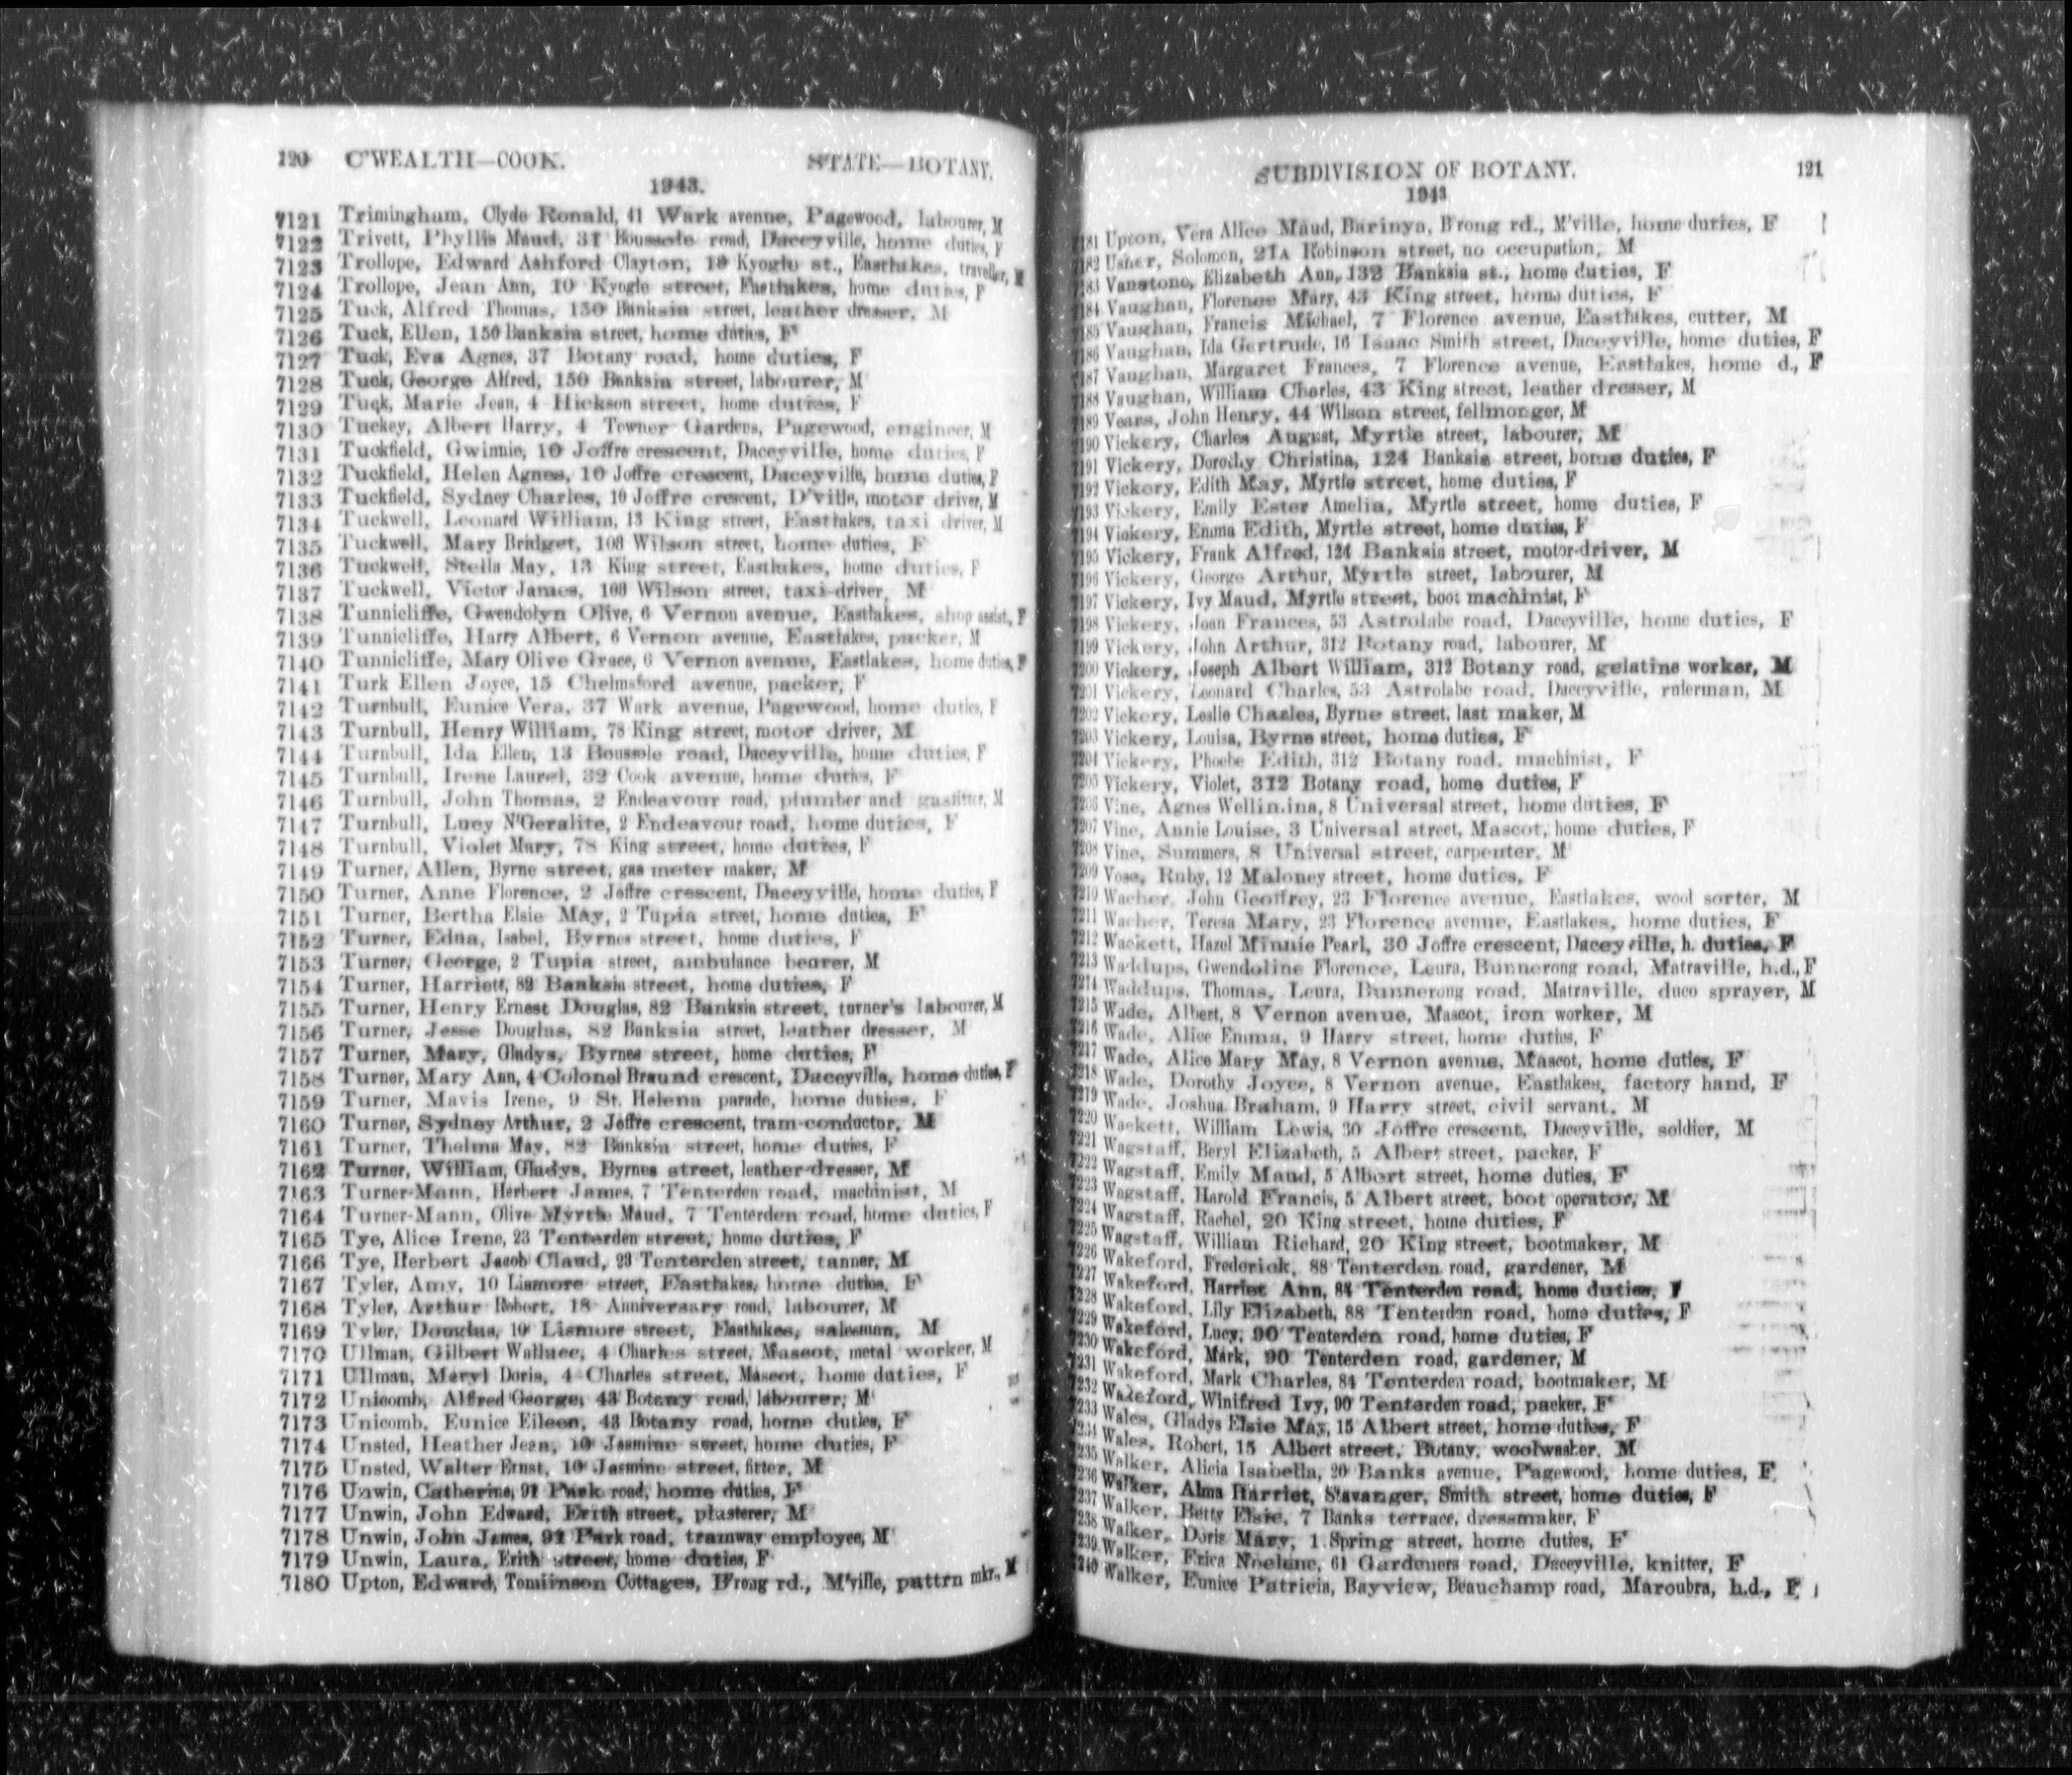 120 C'WEALTH—COOK. STATE—BOTANY.
1943.
7121 Trimingham, Clyde Ronald, 41 Wark avenue, Pagewood, labourer, M
7122 Trivett, Phyllis Maud, 31 Boussole road, Daceyville, home duties, F
7123 Trollope, Edward Ashford Clayton, 10 Kyogle st., Eastlakes, traveller, M
7124 Trollope, Jean Ann, 10 Kyogle street, Eastlakes, home duties, F
7125 Tuck, Alfred Thomas, 150 Banksia street, leather dresser, M
7126 Tuck, Ellen, 150 Banksia street, home duties, F
7127 Tuck, Eva Agnes, 37 Botany road, home duties, F
7128 Tuck, George Alfred, 150 Banksia street, labourer, M
7129 Tuck, Marie Jean, 4 Hickson street, home duties, F
7130 Tuckey, Albert Harry, 4 Towner Gardens, Pagewood, engineer, M
7131 Tuckfield, Gwinnie, 10 Joffre crescent, Daceyville, home duties, F
7132 Tuckfield, Helen Agnes, 10 Joffre crescent, Daceyville, home duties, F
7133 Tuckfield, Sydney Charles, 10 Joffre crescent, D'ville, motor driver, M
7134 Tuckwell, Leonard William, 13 King street, Eastlakes, taxi driver, M
7135 Tuckwell, Mary Bridget, 108 Wilson street, home duties, F
7136 Tuckwell, Stella May, 13 King street, Eastlakes, home duties, F
7137 Tuckwell, Victor James, 108 Wilson street, taxi-driver, M
7138 Tunnicliffe, Gwendolyn Olive, 6 Vernon avenue, Eastlakes, shop assist., F
7139 Tunnicliffe, Harry Albert, 6 Vernon avenue, Eastlakes, packer, M
7140 Tunnicliffe, Mary Olive Grace, 6 Vernon avenue, Eastlakes, home duties, F
7141 Turk Ellen Joyce, 15 Chelmsford avenue, packer, F
7142 Turnbull, Eunice Vera, 37 Wark avenue, Pagewood, home duties, F
7143 Turnbull, Henry William, 78 King street, motor driver, M
7144 Turnbull, Ida Ellen, 13 Boussole road, Daceyville, home duties, F
7145 Turnbull, Irene Laurel, 32 Cook avenue, home duties, F
7146 Turnbull, John Thomas, 2 Endeavour road, plumber and gasfitter, M
7147 Turnbull, Lucy N'Geralite, 2 Endeavour road, home duties, F
7148 Turnbull, Violet Mary, 78 King street, home duties, F
7149 Turner, Allen, Byrne street, gas meter maker, M
7150 Turner, Anne Florence, 2 Joffre crescent, Daceyville, home duties, F
7151 Turner, Bertha Elsie May, 2 Tupia street, home duties, F
7152 Turner, Edna, Isabel, Byrnes street, home duties, F
7153 Turner, George, 2 Tupia street, ambulance bearer, M
7154 Turner, Harriett, 82 Banksia street, home duties, F
7155 Turner, Henry Ernest Douglas, 82 Banksia street, turner's labourer, M
7156 Turner, Jesse Douglas, 82 Banksia street, leather dresser, M
7157 Turner, Mary, Gladys, Byrnes street, home duties, F
7158 Turner, Mary Ann, 4 Colonel Braund crescent, Daceyville, home duties, F
7159 Turner, Mavis Irene, 9 St. Helena parade, home duties, F
7160 Turner, Sydney Arthur, 2 Joffre crescent, tram-conductor, M
7161 Turner, Thelma May, 82 Banksia street, home duties, F
7162 Turner, William, Gladys, Byrnes street, leather-dresser, M
7163 Turner-Mann, Herbert James, 7 Tenterden road, machinist, M
7164 Turner-Mann, Olive Myrth Maud, 7 Tenterden road, home duties, F
7165 Tye, Alice Irene, 23 Tenterden street, home duties, F
7166 Tye, Herbert Jacob Claud, 23 Tenterden street, tanner, M
7167 Tyler, Amy, 10 Lismore street, Eastlakes, home duties, F
7168 Tyler, Arthur Robert, 18 Anniversary road, labourer, M
7169 Tyler, Douglas, 10 Lismore street, Eastlakes, salesman, M
7170 Ullman, Gilbert Wallace, 4 Charles street, Mascot, metal worker, M
7171 Ullman, Meryl Doris, 4 Charles street, Mascot, home duties, F
7172 Unicomb, Alfred George, 43 Botany road, labourer, M
7173 Unicomb, Eunice Eileen, 43 Botany road, home duties, F
7174 Unsted, Heather Jean, 10 Jasmine street, home duties, F
7175 Unsted, Walter Ernst, 10 Jasmine street, fitter, M
7176 Unwin, Catherine, 92 Park road, home duties, F
7177 Unwin, John Edward, Erith street, plasterer, M
7178 Unwin, John James, 92 Park road, tramway employee, M
7179 Unwin, Laura, Erith street, home duties, F
7180 Upton, Edward, Tomlinson Cottages, B'rong rd., M'ville, pattrn mkr., M
SUBDIVISION OF BOTANY. 121
1943
7181 Upton, Vera Alice Maud, Barinya, B'rong rd., M'ville, home duties, F
7182 Usher, Solomon, 21A Robinson street, no occupation, M
7183 Vanstone, Elizabeth Ann, 132 Banksia st., home duties, F
7184 Vaughan, Florence Mary, 43 King street, home duties, F
7185 Vaughan, Francis Michael, 7 Florence avenue, Eastlakes, cutter, M
7186 Vaughan, Ida Gertrude, 16 Isaac Smith street, Daceyville, home duties, F
7187 Vaughan, Margaret Frances, 7 Florence avenue, Eastlakes, home d., F
7188 Vaughan, William Charles, 43 King street, leather dresser, M
7189 Vears, John Henry, 44 Wilson street, fellmonger, M
7190 Vickery, Charles August, Myrtle street, labourer, M
7191 Vickery, Dorothy Christina, 124 Banksia street, home duties, F
7192 Vickery, Edith May, Myrtle street, home duties, F
7193 Vickery, Emily Ester Amelia, Myrtle street, home duties, F
7194 Vickery, Emma Edith, Myrtle street, home duties, F
7195 Vickery, Frank Alfred, 124 Banksia street, motor-driver, M
7196 Vickery, George Arthur, Myrtle street, labourer, M
7197 Vickery, Ivy Maud, Myrtle street, boot machinist, F
7198 Vickery, Joan Frances, 53 Astrolabe road, Daceyville, home duties, F
7199 Vickery, John Arthur, 312 Botany road, labourer, M
7200 Vickery, Joseph Albert William, 312 Botany road, gelatine worker, M
7201 Vickery, Leonard Charles, 53 Astrolabe road, Daceyville, rulerman, M
7202 Vickery, Leslie Charles, Byrne street, last maker, M
7203 Vickery, Louisa, Byrne street, home duties, F
7204 Vickery, Phoebe Edith, 312 Botany road, machinist, F
7205 Vickery, Violet, 312 Botany road, home duties, F
7206 Vine, Agnes Wellin.ina, 8 Universal street, home duties, F
7207 Vine, Annie Louise, 3 Universal street, Mascot, home duties, F
7208 Vine, Summers, 8 Universal street, carpenter, M
7209 Vose, Ruby, 12 Maloney street, home duties, F
7210 Wacher, John Geoffrey, 23 Florence avenue, Eastlakes, wool sorter, M
7211 Wacher, Teresa Mary, 23 Florence avenue, Eastlakes, home duties, F
7212 Wackett, Hazel Minnie Pearl, 30 Joffre crescent, Daceyville, h. duties, F
7213 Waddups, Gwendoline Florence, Leura, Bunnerong road, Matraville, h.d., F
7214 Waddups, Thomas, Leura, Bunnerong road, Matraville, duco sprayer, M
7215 Wade, Albert, 8 Vernon avenue, Mascot, iron worker, M
7216 Wade, Alice Emma, 9 Harry street, home duties, F
7217 Wade, Alice Mary May, 8 Vernon avenue, Mascot, home duties, F
7218 Wade, Dorothy Joyce, 8 Vernon avenue, Eastlakes, factory hand, F
7219 Wade, Joshua Braham, 9 Harry street, civil servant, M
7220 Wackett, William Lewis, 30 Joffre crescent, Daceyville, soldier, M
7221 Wagstaff, Beryl Elizabeth, 5 Albert street, packer, F
7222 Wagstaff, Emily Maud, 5 Albert street, home duties, F
7223 Wagstaff, Harold Francis, 5 Albert street, boot operator, M
7224 Wagstaff, Rachel, 20 King street, home duties, F
7225 Wagstaff, William Richard, 20 King street, bootmaker, M
7226 Wakeford, Frederick, 88 Tenterden road, gardener, M
7227 Wakeford, Harriet Ann, 84 Tenterden road, home duties, F
7228 Wakeford, Lily Elizabeth, 88 Tenterden road, home duties, F
7229 Wakeford, Lucy, 90 Tenterden road, home duties, F
7230 Wakeford, Mark, 90 Tenterden road, gardener, M
7231 Wakeford, Mark Charles, 84 Tenterden road, bootmaker, M
7232 Wakeford, Winifred Ivy, 90 Tenterden road, packer, F
7233 Wales, Gladys Elsie May, 15 Albert street, home duties, F
7234 Wales, Robert, 15 Albert street, Botany, woolwasher, M
7235 Walker, Alicia Isabella, 20 Banks avenue, Pagewood, home duties, F
7236 Walker, Alma Harriet, Stavanger, Smith street, home duties, F
7237 Walker, Betty Elsie, 7 Banks terrace, dressmaker, F
7238 Walker, Doris Mary, 1 Spring street, home duties, F
7239 Walker, Erica Noelene, 61 Gardeners road, Daceyville, knitter, F
7240 Walker, Eunice Patricia, Bayview, Beauchamp road, Maroubra, h.d., F